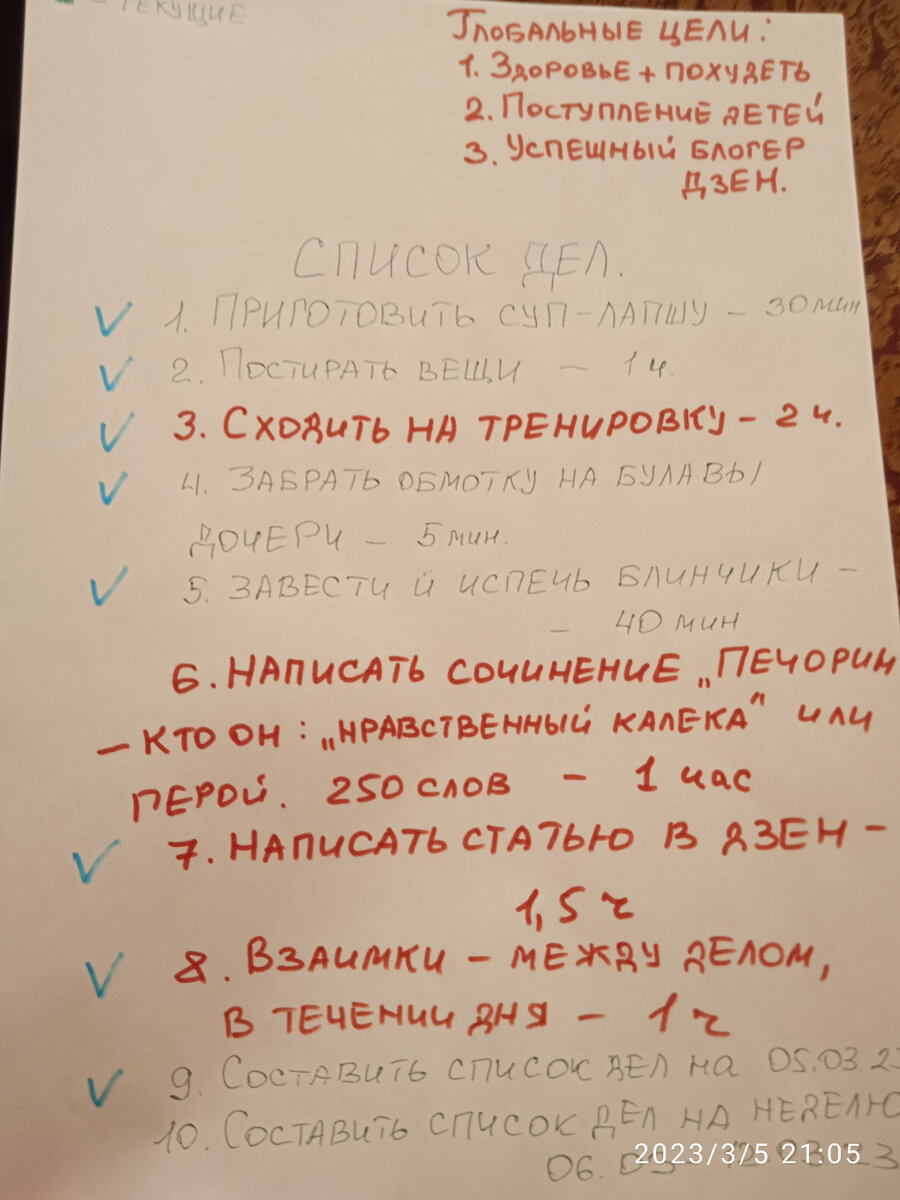 - ТЕКУЩИЕ
Глобальные цели:
1. Здоровье + похудеть
2. Поступление детей
3. Успешный блогер
Дзен.
Список дел.
1. Приготовить суп-лапшу - 30 мин
2. Постирать вещи - 1 ч.
3. Сходить на тренировку - 2 ч.
4. Забрать обмотку на булавы
дочери - 5 мин.
5. Завести й испечь блинчики -
- 40 мин
6. Написать сочинение „Печорин
- кто он: „нравственный калека" или
герой. 250 слов - 1 час
7. Написать статью в Дзен -
1,5 ч
8. Взаимки - между делом,
в течении дня - 1 ч
9. Составить список дел на 05.03.23
10. Составить список дел на неделю
06.03
2023/3/5 21:05